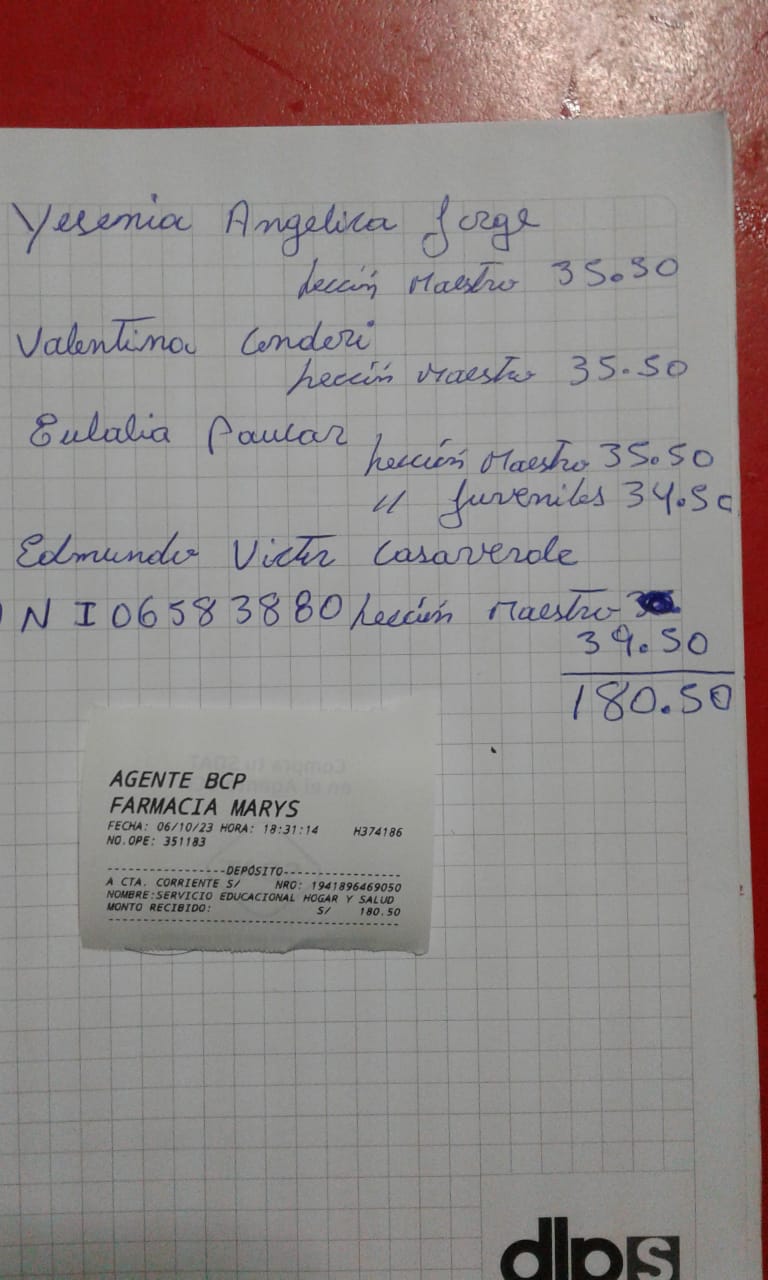 Yesenia Angelica Jorge
Lección Maestro 35.50
Valentina Conderi
Lección Maestro 35.50
Eulalia Paucar
Lección Maestro 35.50
" Juveniles 34.50
Edmundo Victor Casaverde
N I 06583880 Lección Maestro
39.50
180.50
AGENTE BCP
FARMACIA MARYS
FECHA: 06/10/23 HORA: 18:31:14 H374186
NO.OPE: 351183
DEPÓSITO
A CTA. CORRIENTE S/ NRO: 1941896469050
NOMBRE:SERVICIO EDUCACIONAL HOGAR Y SALUD
MONTO RECIBIDO: S/ 180.50
dlps